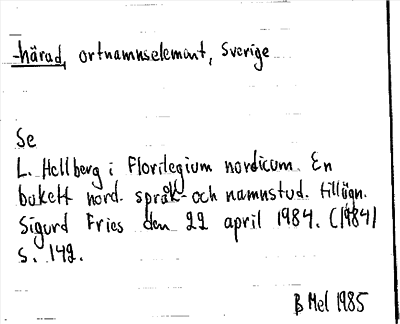 -härad, ortnamnselement, Sverige
Se
L. Hellberg i Florilegium nordicum. En
bukett nord. språk- och namnstud. tillägn.
Sigurd Fries den 22 april 1984. (1984)
s. 142.
B Mel 1985